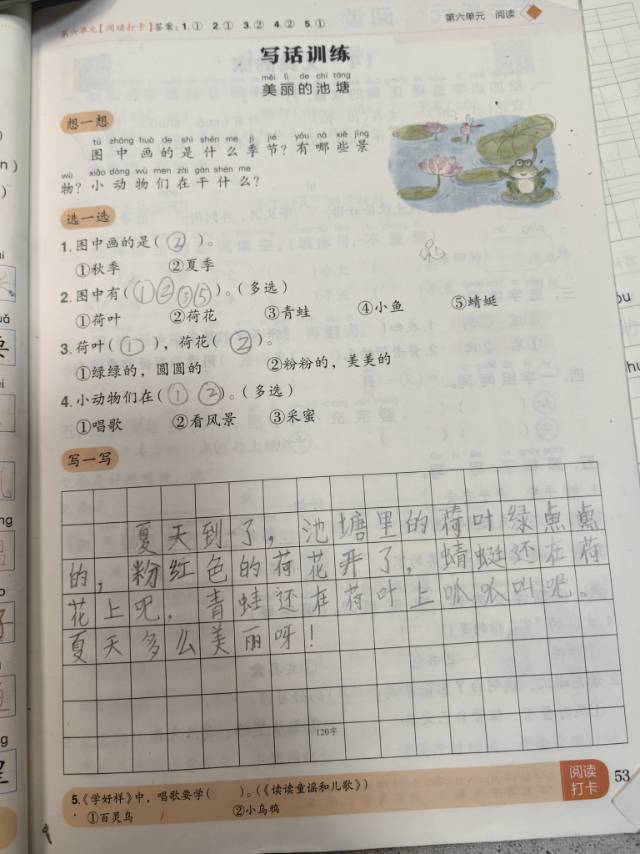 第六单元【阅读打卡】答案：1.① 2.① 3.② 4.② 5.①
第六单元 阅读
写话训练
měi lì de chí táng
美丽的池塘
想一想
tú zhōng huà de shì shén me jì jié yǒu nǎ xiē jǐng
图中画的是什么季节？有哪些景
wù xiǎo dòng wù men zài gàn shén me
物？小动物们在干什么？
选一选
1.图中画的是（②）。
①秋季 ②夏季
2.图中有（①②③⑤）。（多选）
①荷叶 ②荷花 ③青蛙 ④小鱼 ⑤蜻蜓
3.荷叶（①），荷花（②）。
①绿绿的，圆圆的 ②粉粉的，美美的
4.小动物们在（①②）。（多选）
①唱歌 ②看风景 ③采蜜
写一写
夏天到了，池塘里的荷叶绿
的，粉红色的荷花开了，蜻蜓还在荷
花上呢，青蛙还在荷叶上呱呱叫呢。
夏天多么美丽呀！
120字
5.《学好样》中，唱歌要学（ ）。（《读读童谣和儿歌》）
①百灵鸟 ②小乌鸦
阅读
打卡
53